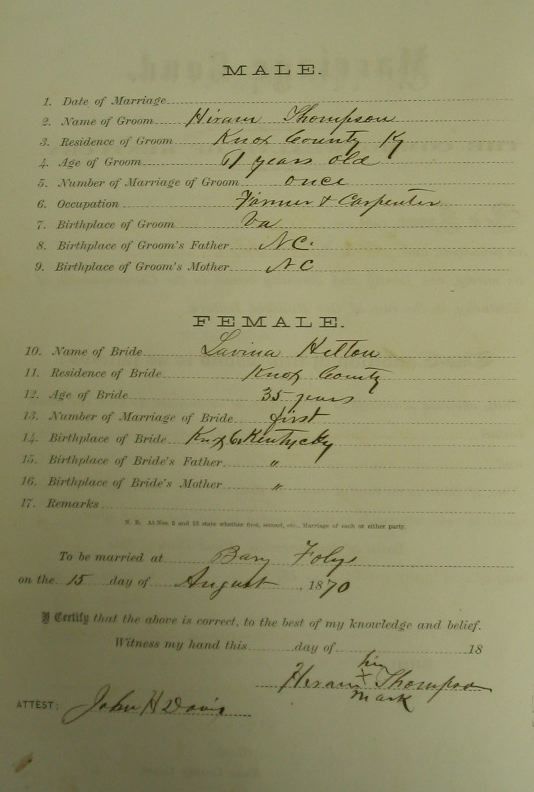 MALE.
1. Date of Marriage
2. Name of Groom Hiram Thompson
3. Residence of Groom Knox County Ky
4. Age of Groom 61 years old
5. Number of Marriage of Groom once
6. Occupation Farmer & Carpenter
7. Birthplace of Groom Va
8. Birthplace of Groom's Father N.C.
9. Birthplace of Groom's Mother NC
FEMALE.
10. Name of Bride Lavina Hilton
11. Residence of Bride Knox County
12. Age of Bride 35 years
13. Number of Marriage of Bride first
14. Birthplace of Bride Knox Co Kentycky
15. Birthplace of Bride's Father "
16. Birthplace of Bride's Mother "
17. Remarks
N. B. At Nos. 5 and 13 state whether first, second, etc., Marriage of each or either party.
To be married at Folys
on the 15 day of August, 1870
I Certify that the above is correct, to the best of my knowledge and belief.
Witness my hand this day of 18
his
Hiram + Thompson
mark
ATTEST: John H Davis